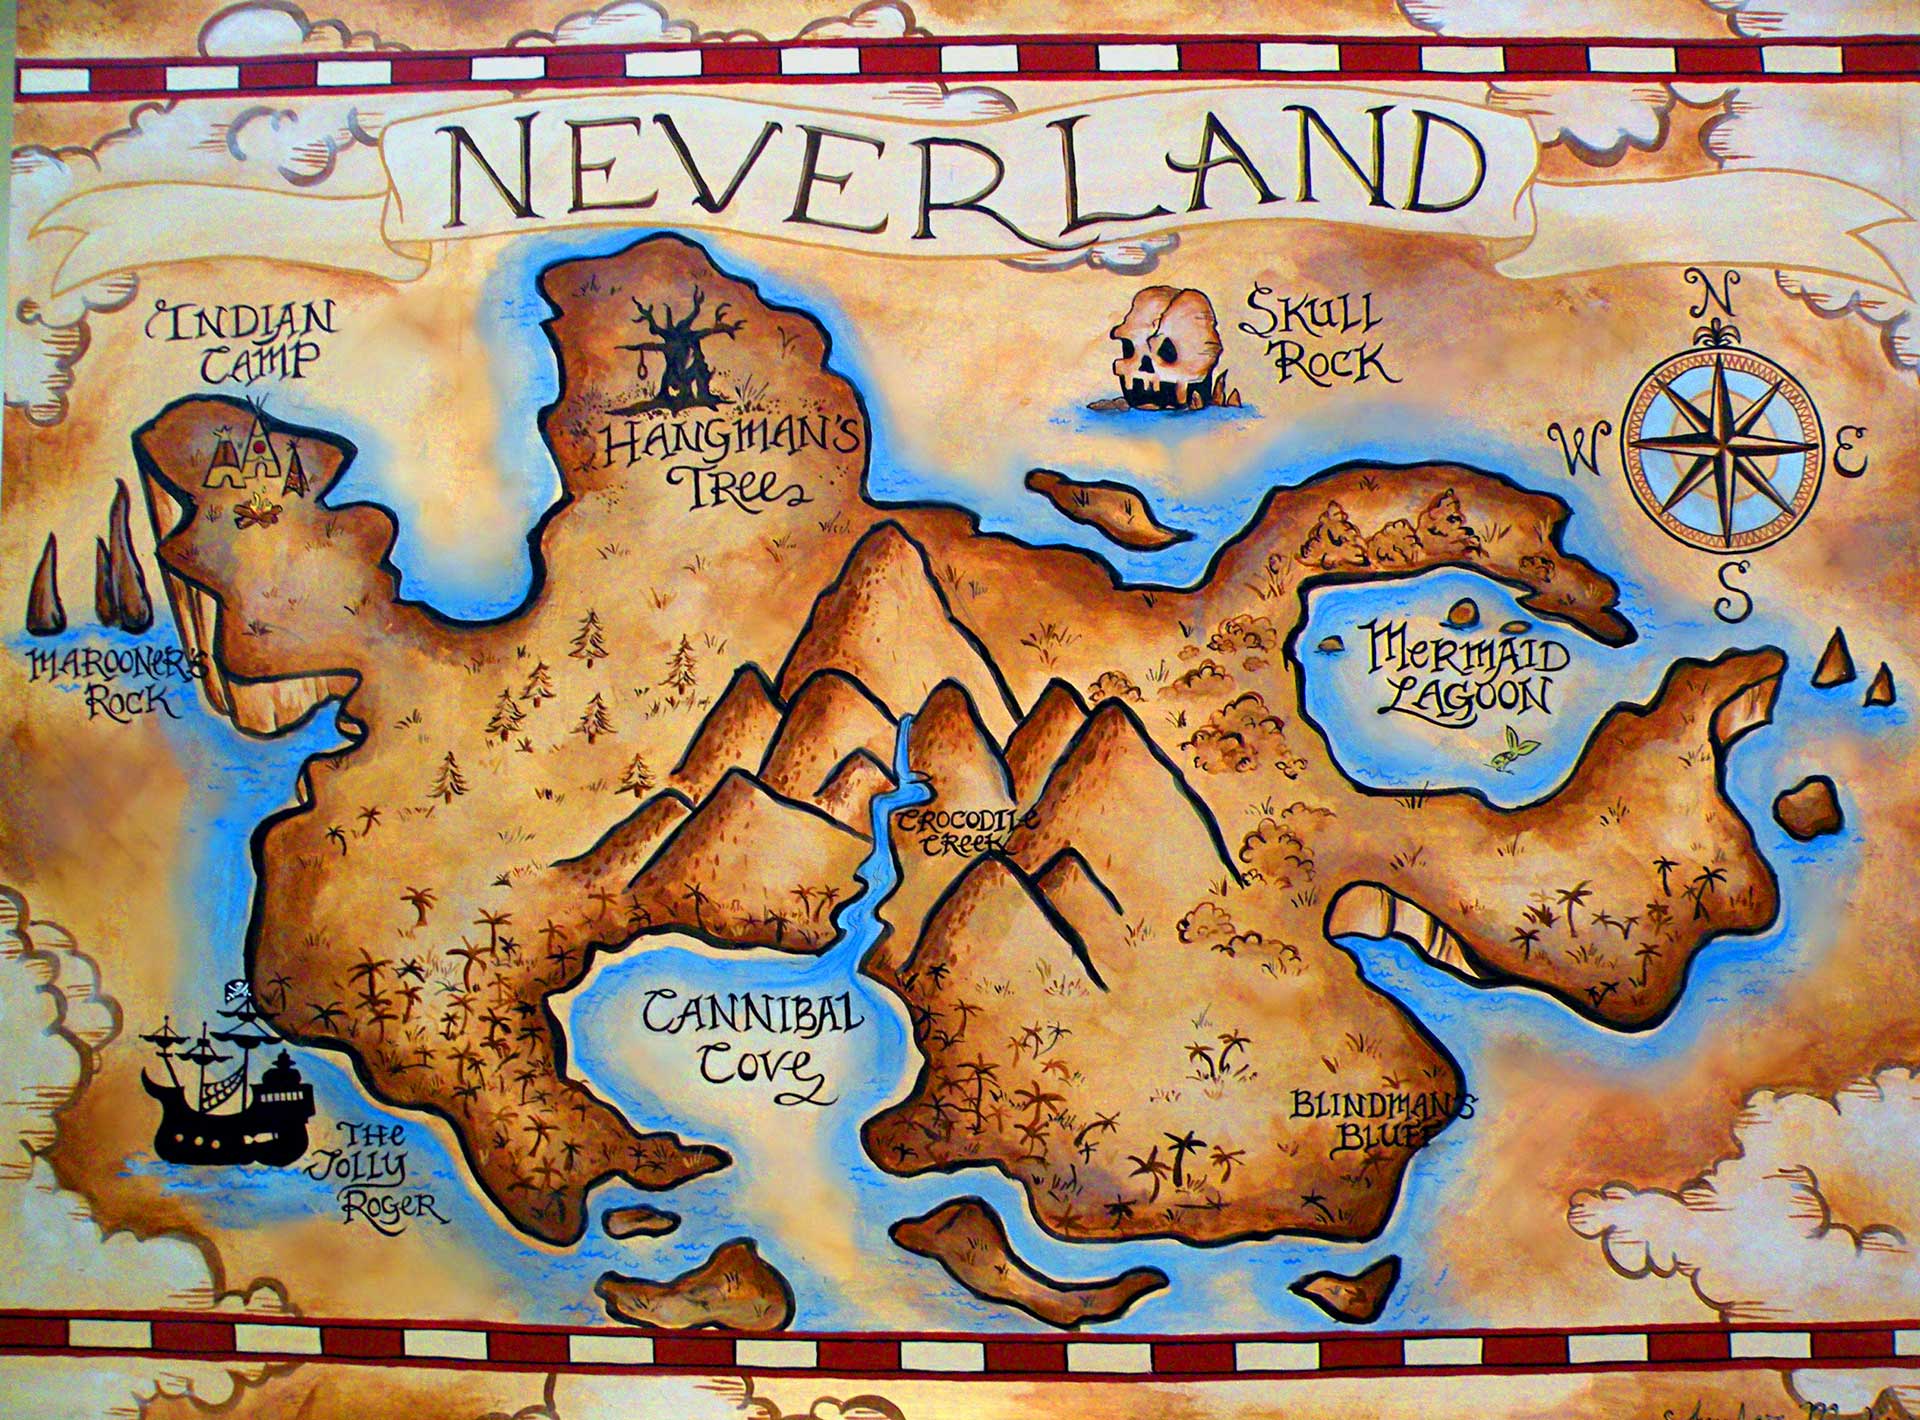 NEVERLAND
INDIAN
CAMP
SKULL
ROCK
N
W
E
S
HANGMAN'S
TREE
MAROONER'S
ROCK
MERMAID
LAGOON
CROCODILE
CREEK
CANNIBAL
COVE
BLINDMAN'S
BLUFF
THE
JOLLY
ROGER